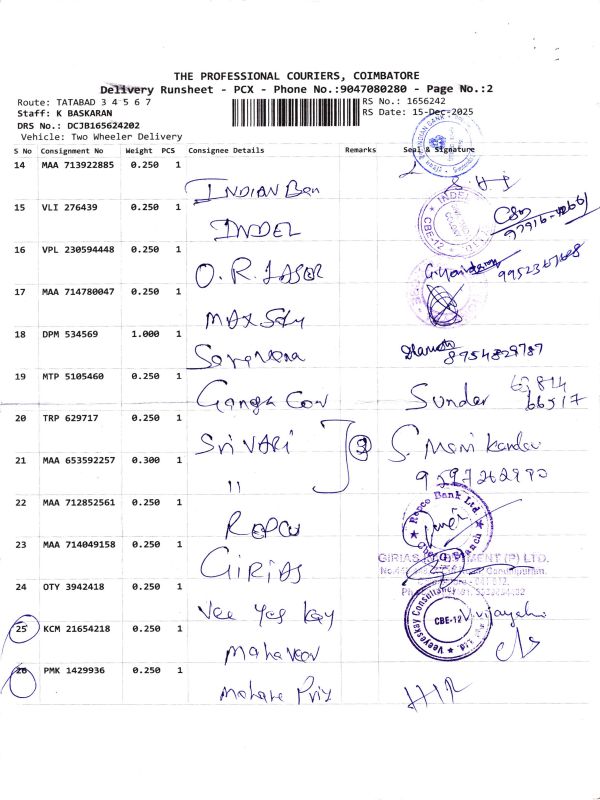 THE PROFESSIONAL COURIERS, COIMBATORE
Delivery Runsheet - PCX - Phone No.:9047080280 - Page No.:2
Route: TATABAD 3 4 5 6 7
RS No.: 1656242
Staff: K BASKARAN
RS Date: 15-Dec-2025
DRS No.: DCJB165624202
Vehicle: Two Wheeler Delivery
S No Consignment No Weight PCS Consignee Details Remarks Seal & Signature
14 MAA 713922885 0.250 1
INDIAN Ban
15 VLI 276439 0.250 1
INDEL
16 VPL 230594448 0.250 1
O.R. LASER
9952367668
17 MAA 714780047 0.250 1
MAX Sky
18 DPM 534569 1.000 1
Saravana
8754829787
19 MTP 5105460 0.250 1
Ganga Cow Sunder 63814 66517
20 TRP 629717 0.250 1
Sri VARI 2 S. Manikandan
21 MAA 653592257 0.300 1
"
22 MAA 712852561 0.250 1
REPCO Repco Bank Ltd.
23 MAA 714049158 0.250 1
GIRIAS GIRIAS INVESTMENT (P) LTD.
24 OTY 3942418 0.250 1
Vee Yes Kay Veeyeskay Consultancy CBE-12
25 KCM 21654218 0.250 1
Mahaveer
26 PMK 1429936 0.250 1